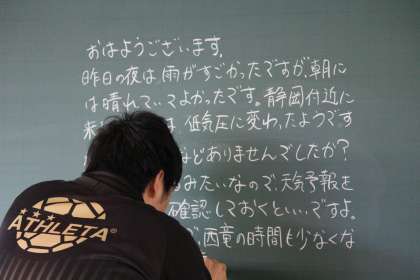 おはようございます.
昨日の夜は雨がすごかったですが、朝に
は晴れていてよかったです。静岡付近に
は、低気圧に変わったようです
などありませんでしたか?
みたいなので、天気予報を
確認しておくといいですよ。
西竜の時間も少なくな
ATHLETA